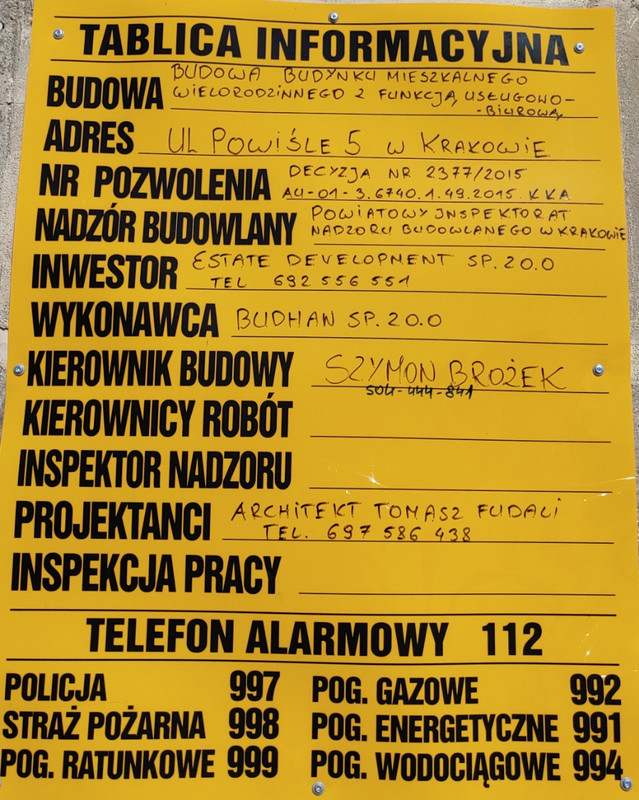 TABLICA INFORMACYJNA
BUDOWA BUDOWA BUDYNKU MIESZKALNEGO
WIELORODZINNEGO Z FUNKCJĄ USŁUGOWO-
-BIUROWĄ
ADRES UL POWIŚLE 5 W KRAKOWIE
NR POZWOLENIA DECYZJA NR 2377/2015
AU-01-3.6740.1.49.2015.KKA
NADZÓR BUDOWLANY POWIATOWY INSPEKTORAT
NADZORU BUDOWLANEGO W KRAKOWIE
INWESTOR ESTATE DEVELOPMENT SP. Z O.O
TEL 692 556 551
WYKONAWCA BUDHAN SP. Z O.O
KIEROWNIK BUDOWY SZYMON BROŻEK
504-444-841
KIEROWNICY ROBÓT
INSPEKTOR NADZORU
PROJEKTANCI ARCHITEKT TOMASZ FUDALI
TEL. 697 586 438
INSPEKCJA PRACY
TELEFON ALARMOWY 112
POLICJA 997 POG. GAZOWE 992
STRAŻ POŻARNA 998 POG. ENERGETYCZNE 991
POG. RATUNKOWE 999 POG. WODOCIĄGOWE 994